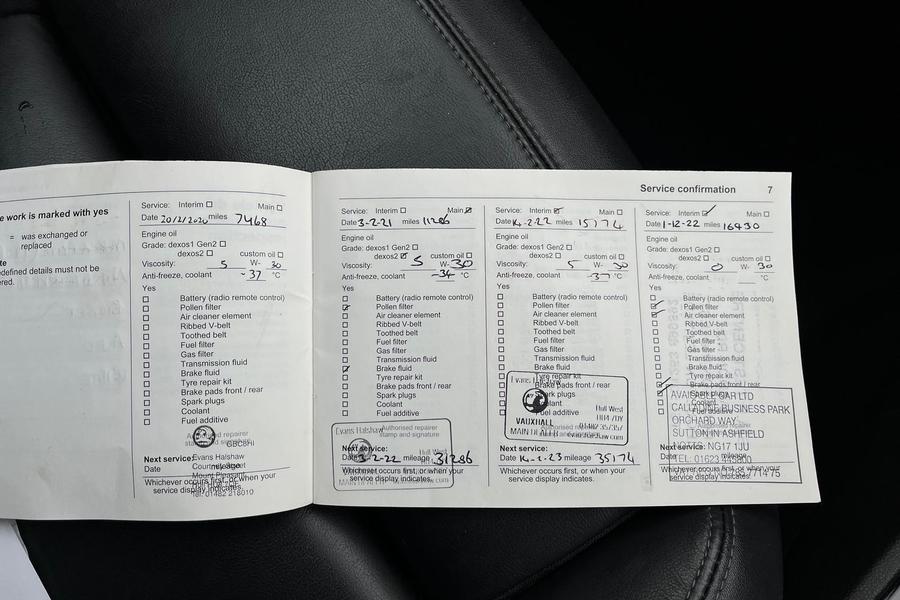 Service confirmation 7
e work is marked with yes
= was exchanged or
replaced
defined details must not be
ered.
Service: Interim Main
Date 20/2/2020 miles 7468
Engine oil
Grade: dexos1 Gen2
dexos2 custom oil
Viscosity: 5 W- 30
Anti-freeze, coolant -37 °C
Yes
Battery (radio remote control)
Pollen filter
Air cleaner element
Ribbed V-belt
Toothed belt
Fuel filter
Gas filter
Transmission fluid
Brake fluid
Tyre repair kit
Brake pads front / rear
Spark plugs
Coolant
Fuel additive
Evans Halshaw
Next service:
Date mileage
Whichever occurs first, or when your
service display indicates.
Tel: 01482 218010
Service: Interim Main
Date 3-2-21 miles 11286
Engine oil
Grade: dexos1 Gen2
dexos2 custom oil
Viscosity: 5 W- 30
Anti-freeze, coolant -34 °C
Yes
Battery (radio remote control)
Pollen filter
Air cleaner element
Ribbed V-belt
Toothed belt
Fuel filter
Gas filter
Transmission fluid
Brake fluid
Tyre repair kit
Brake pads front / rear
Spark plugs
Coolant
Fuel additive
Evans Halshaw
Authorised repairer
stamp and signature
Next service:
Date 3-2-22 mileage 31286
Whichever occurs first, or when your
service display indicates.
Service: Interim Main
Date 14-2-22 miles 15174
Engine oil
Grade: dexos1 Gen2
dexos2 custom oil
Viscosity: 5 W- 30
Anti-freeze, coolant -37 °C
Yes
Battery (radio remote control)
Pollen filter
Air cleaner element
Ribbed V-belt
Toothed belt
Fuel filter
Gas filter
Transmission fluid
Brake fluid
Tyre repair kit
Brake pads front / rear
Spark plugs
Coolant
Fuel additive
Evans Halshaw
Hull West
VAUXHALL
MAIN DEALER
Next service:
Date 14-2-23 mileage 35174
Whichever occurs first, or when your
service display indicates.
Service: Interim Main
Date 1-12-22 miles 16430
Engine oil
Grade: dexos1 Gen2
dexos2 custom oil
Viscosity: 0 W- 30
Anti-freeze, coolant °C
Yes
Battery (radio remote control)
Pollen filter
Air cleaner element
Ribbed V-belt
Toothed belt
Fuel filter
Gas filter
Transmission fluid
Brake fluid
Tyre repair kit
Brake pads front / rear
Spark plugs
Coolant
Fuel additive
CAR LTD
BUSINESS PARK
ORCHARD WAY
SUTTON IN ASHFIELD
NOTTS: NG17 1JU
Next service:
Date mileage
TEL: 01623
Whichever occurs first, or when your
service display indicates.